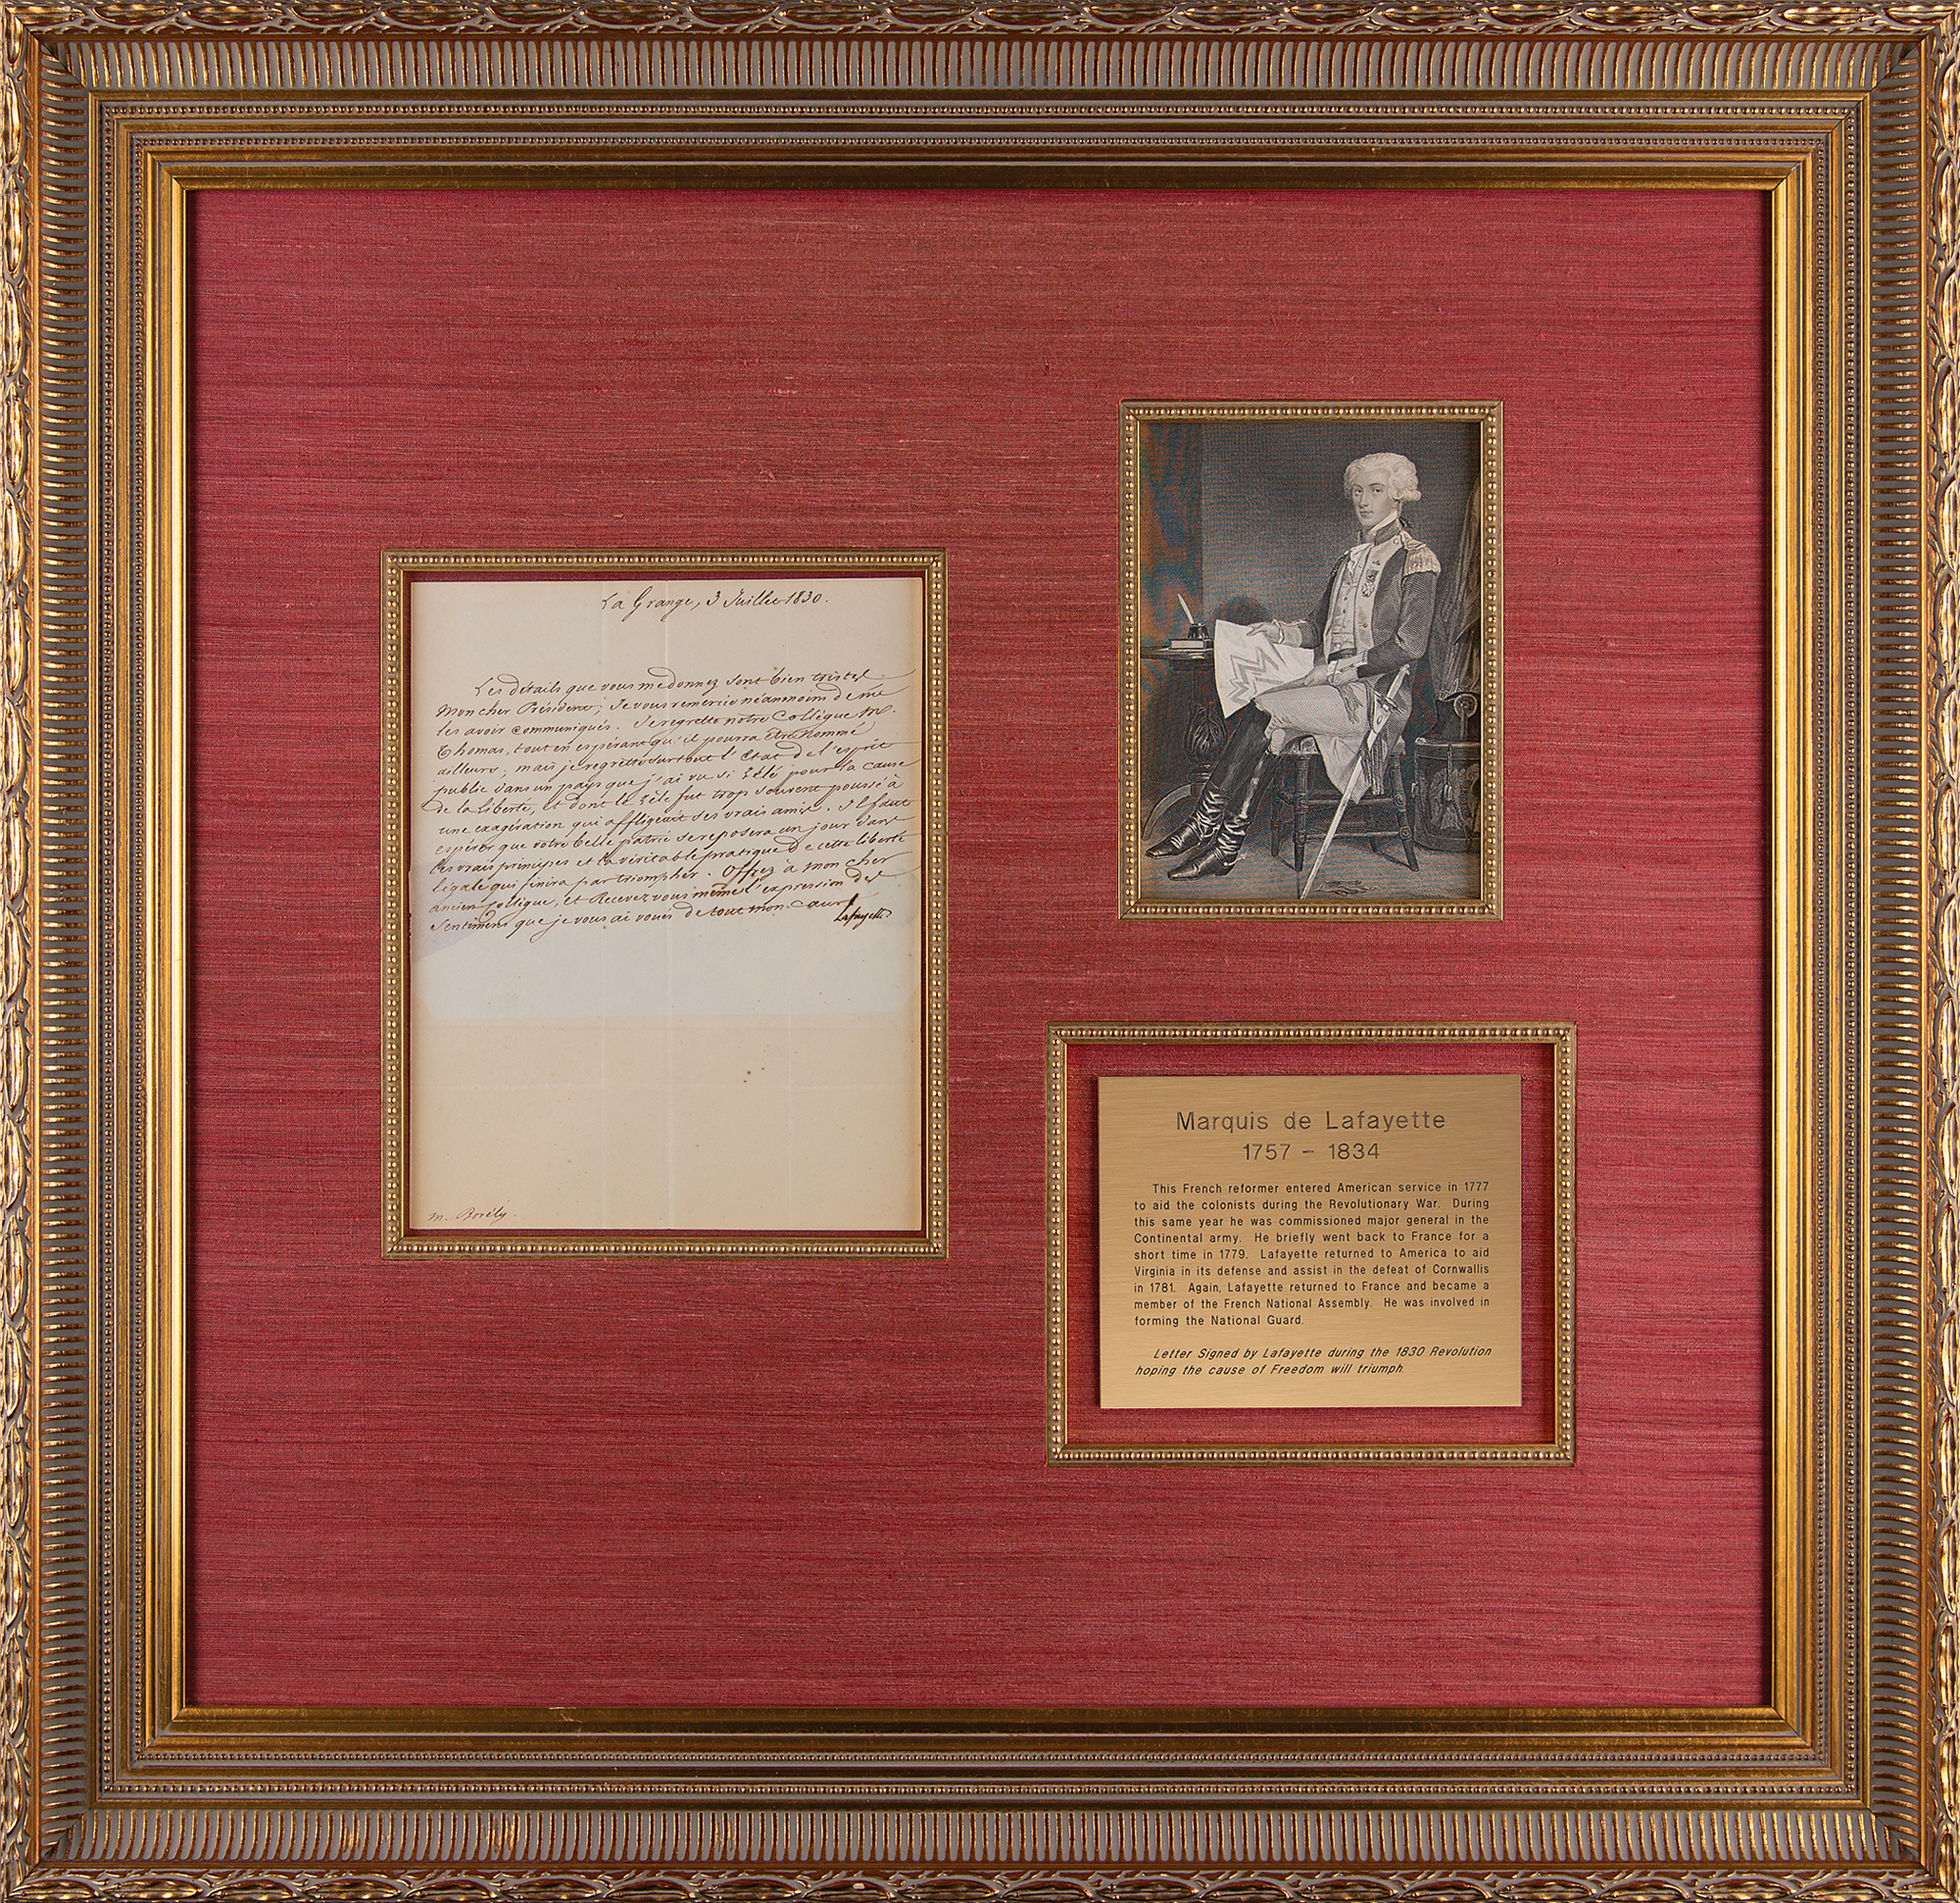 La Grange, 3 Juillet 1830.
Les détails que vous me donnez sont bien tristes
mon cher Président; Je vous remercie néanmoins de me
les avoir communiqués. Je regrette notre Collègue M.
Thomas, tout en espérant qu'il pourra être nommé
ailleurs; mais je regrette surtout l'Etat de l'esprit
public dans un pays que j'ai vu si zèlé pour la cause
de la liberté, et dont le zèle fut trop souvent poussé à
une exagération qui affligeait ses vrais amis. Il faut
espérer que votre belle patrie se reposera un jour dans
les vrais principes et la véritable pratique de cette liberté
légale qui finira par triompher. Offrez à mon cher
ancien Collègue, et Recevez vous même l'expression des
Sentimens que je vous ai voués de tout mon cœur
Lafayette
M. Borély.
Marquis de Lafayette
1757 - 1834
This French reformer entered American service in 1777
to aid the colonists during the Revolutionary War. During
this same year he was commissioned major general in the
Continental army. He briefly went back to France for a
short time in 1779. Lafayette returned to America to aid
Virginia in its defense and assist in the defeat of Cornwallis
in 1781. Again, Lafayette returned to France and became a
member of the French National Assembly. He was involved in
forming the National Guard.
Letter Signed by Lafayette during the 1830 Revolution
hoping the cause of Freedom will triumph.